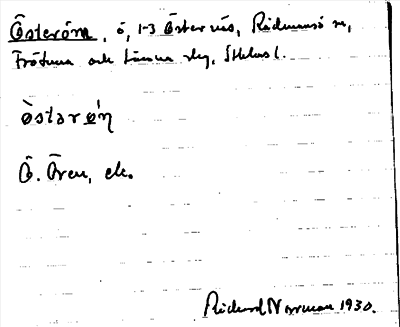 Österöra, ö, 1-3 Östernäs, Rådmansö sn,
Frötuna och Länna skg, Sthlms l.
òstərø̀n
Ö. Ören, ek.
Richard Norrman 1930.